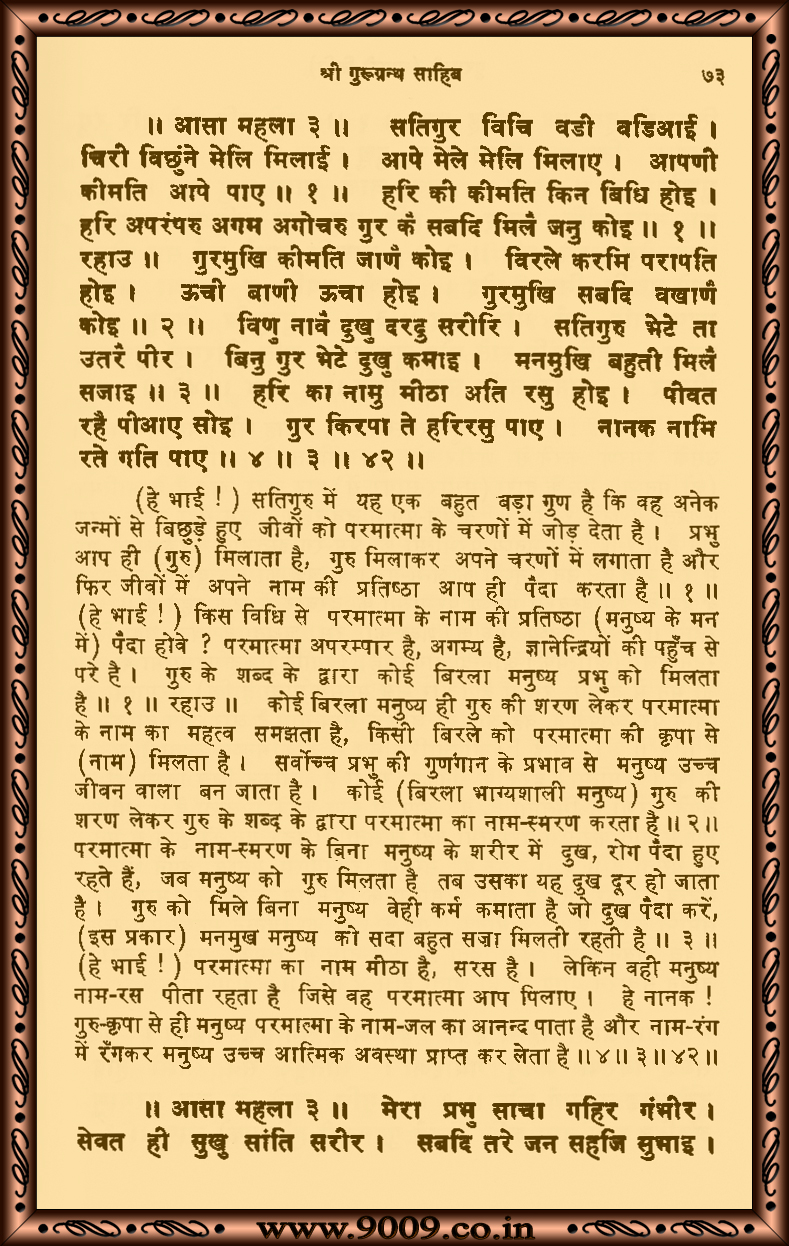 श्री गुरूग्रन्थ साहिब ७३
॥ आसा महला ३ ॥ सतिगुर विचि वडी वडिआई ।
चिरी विछुंने मेलि मिलाई । आपे मेले मेलि मिलाए । आपणी
कीमति आपे पाए ॥ १ ॥ हरि की कीमति किन बिधि होइ ।
हरि अपरंपरु अगम अगोचरु गुर कै सबदि मिलै जनु कोइ ॥ १ ॥
रहाउ ॥ गुरमुखि कीमति जाणै कोइ । विरले करमि परापति
होइ । ऊची बाणी ऊचा होइ । गुरमुखि सबदि वखाणै
कोइ ॥ २ ॥ विणु नावै दुखु दरदु सरीरि । सतिगुरु भेटे ता
उतरै पीर । बिनु गुर भेटे दुखु कमाइ । मनमुखि बहुती मिलै
सजाइ ॥ ३ ॥ हरि का नामु मीठा अति रसु होइ । पीवत
रहै पीआए सोइ । गुर किरपा ते हरिरसु पाए । नानक नामि
रते गति पाए ॥ ४ ॥ ३ ॥ ४२ ॥
(हे भाई ! ) सतिगुरु में यह एक बहुत बड़ा गुण है कि वह अनेक
जन्मों से बिछुड़े हुए जीवों को परमात्मा के चरणों में जोड़ देता है । प्रभु
आप ही (गुरु) मिलाता है, गुरु मिलाकर अपने चरणों में लगाता है और
फिर जीवों में अपने नाम की प्रतिष्ठा आप ही पैदा करता है ॥ १ ॥
(हे भाई ! ) किस विधि से परमात्मा के नाम की प्रतिष्ठा (मनुष्य के मन
में) पैदा होवे ? परमात्मा अपरम्पार है, अगम्य है, ज्ञानेन्द्रियों की पहुँच से
परे है । गुरु के शब्द के द्वारा कोई बिरला मनुष्य प्रभु को मिलता
है ॥ १ ॥ रहाउ ॥ कोई बिरला मनुष्य ही गुरु की शरण लेकर परमात्मा
के नाम का महत्व समझता है, किसी बिरले को परमात्मा की कृपा से
(नाम) मिलता है । सर्वोच्च प्रभु की गुणगान के प्रभाव से मनुष्य उच्च
जीवन वाला बन जाता है । कोई (बिरला भाग्यशाली मनुष्य) गुरु की
शरण लेकर गुरु के शब्द के द्वारा परमात्मा का नाम-स्मरण करता है ॥ २ ॥
परमात्मा के नाम-स्मरण के बिना मनुष्य के शरीर में दुख, रोग पैदा हुए
रहते हैं, जब मनुष्य को गुरु मिलता है तब उसका यह दुख दूर हो जाता
है । गुरु को मिले बिना मनुष्य वेही कर्म कमाता है जो दुख पैदा करें,
(इस प्रकार) मनमुख मनुष्य को सदा बहुत सज़ा मिलती रहती है ॥ ३ ॥
(हे भाई ! ) परमात्मा का नाम मीठा है, सरस है । लेकिन वही मनुष्य
नाम-रस पीता रहता है जिसे वह परमात्मा आप पिलाए । हे नानक !
गुरु-कृपा से ही मनुष्य परमात्मा के नाम-जल का आनन्द पाता है और नाम-रंग
में रँगकर मनुष्य उच्च आत्मिक अवस्था प्राप्त कर लेता है ॥ ४ ॥ ३ ॥ ४२ ॥
॥ आसा महला ३ ॥ मेरा प्रभु साचा गहिर गंभीर ।
सेवत ही सुखु सांति सरीर । सबदि तरे जन सहजि सुभाइ ।
www.9009.co.in